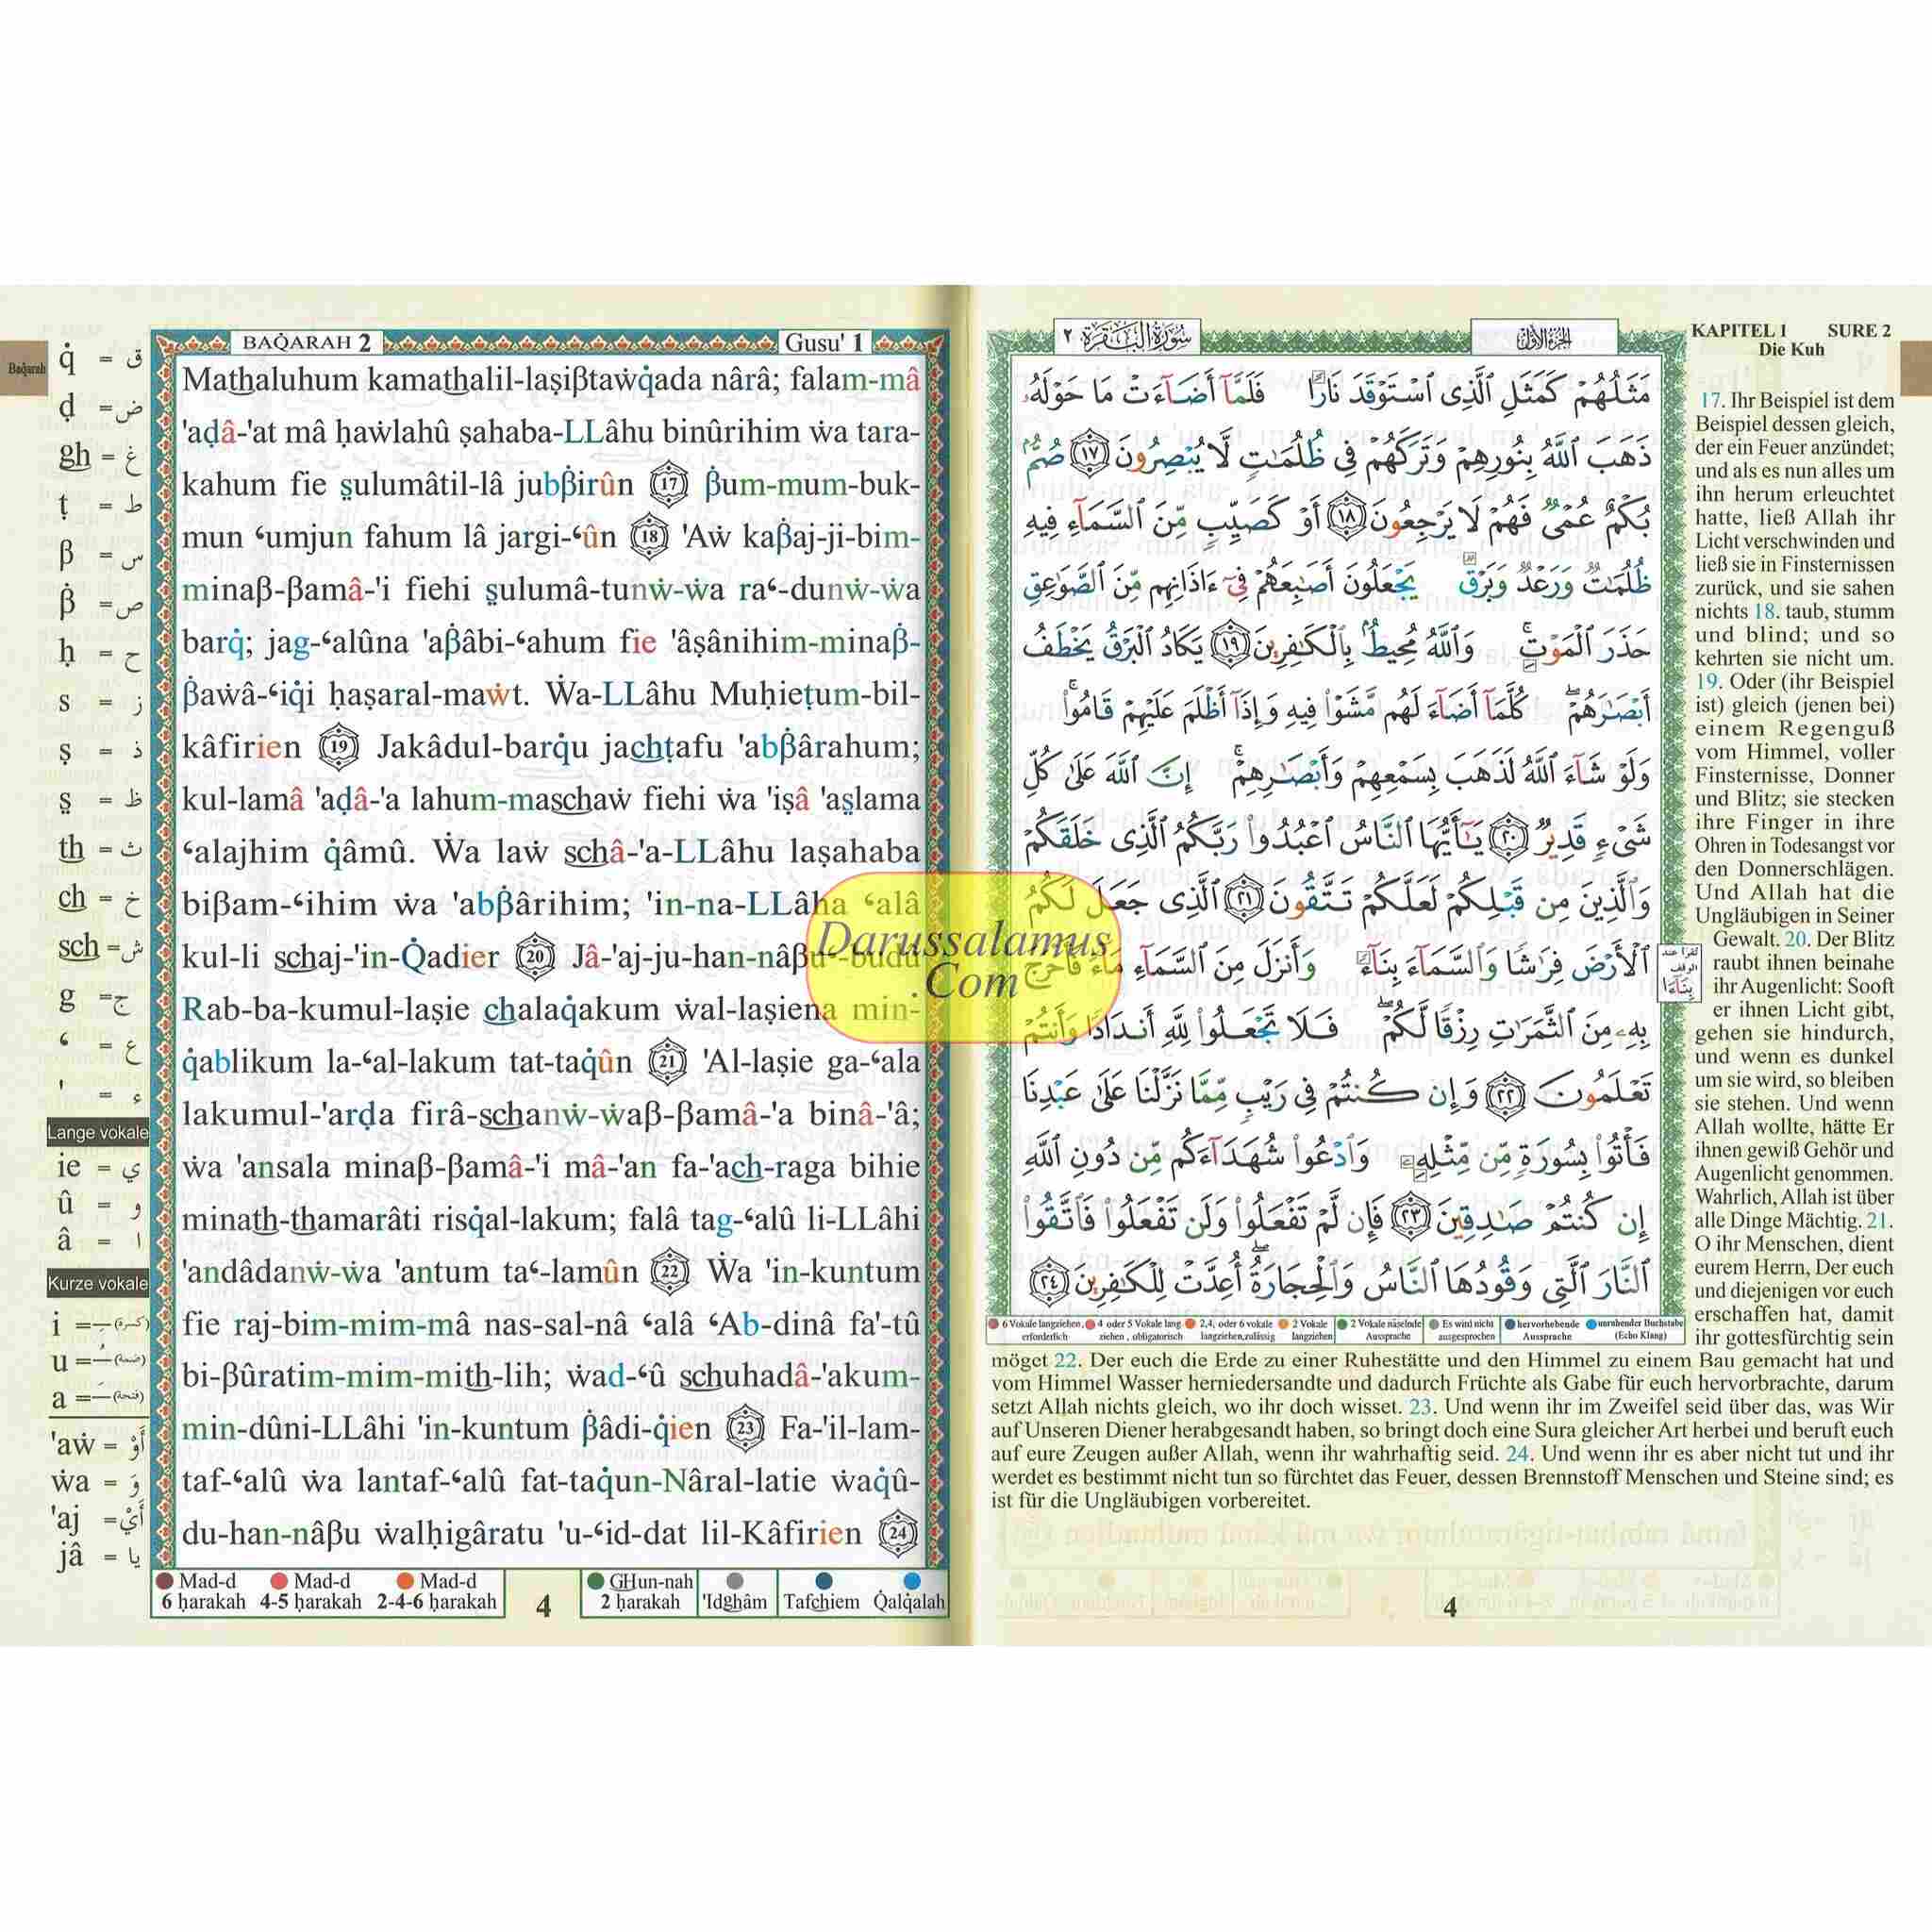 Baqarah
q̇ = ق
ḍ = ض
gh = غ
ṭ = ط
β = س
β̇ = ص
ḥ = ح
s = ز
ṣ = ذ
ṣ̤ = ظ
th = ث
ch = خ
sch = ش
g = ج
ʿ = ع
' = ء
Lange vokale
ie = ي
û = و
â = ا
Kurze vokale
i = ـِ (كسرة)
u = ـُ (ضمة)
a = ـَ (فتحة)
'aẇ = أَوْ
ẇa = وَ
'aj = أَيْ
jâ = يا
BAQ̇ARAH 2
Gusu' 1
Mathaluhum kamathalil-laṣiβtaẇq̇ada nârâ; falam-mâ
'aḍâ-'at mâ ḥaẇlahû ṣahaba-LLâhu binûrihim ẇa tara-
kahum fie ṣ̤ulumâtil-lâ jubβ̇irûn 17 β̇um-mum-buk-
mun ʿumjun fahum lâ jargi-ʿûn 18 'Aẇ kaβ̇aj-ji-bim-
minaβ-βamâ-'i fiehi ṣ̤ulumâ-tunẇ-ẇa raʿ-dunẇ-ẇa
barq̇; jag-ʿalûna 'aβ̇âbi-ʿahum fie 'âṣânihim-minaβ̇-
β̇aẇâ-ʿiq̇i ḥaṣaral-maẇt. Ẇa-LLâhu Muḥieṭum-bil-
kâfirien 19 Jakâdul-barq̇u jachṭafu 'abβ̇ârahum;
kul-lamâ 'aḍâ-'a lahum-maschaẇ fiehi ẇa 'iṣâ 'aṣ̤lama
ʿalajhim q̇âmû. Ẇa laẇ schâ-'a-LLâhu laṣahaba
biβam-ʿihim ẇa 'abβ̇ârihim; 'in-na-LLâha ʿalâ
kul-li schaj-'in-Q̇adier 20 Jâ-'aj-ju-han-nâβuʿ-budû
Rab-ba-kumul-laṣie chalaq̇akum ẇal-laṣiena min-
q̇ablikum la-ʿal-lakum tat-taq̇ûn 21 'Al-laṣie ga-ʿala
lakumul-'arḍa firâ-schanẇ-ẇaβ-βamâ-'a binâ-'â;
ẇa 'ansala minaβ-βamâ-'i mâ-'an fa-'ach-raga bihie
minath-thamarâti risq̇al-lakum; falâ tag-ʿalû li-LLâhi
'andâdanẇ-ẇa 'antum taʿ-lamûn 22 Ẇa 'in-kuntum
fie raj-bim-mim-mâ nas-sal-nâ ʿalâ ʿAb-dinâ fa'-tû
bi-βûratim-mim-mith-lih; ẇad-ʿû schuhadâ-'akum-
min-dûni-LLâhi 'in-kuntum β̇âdi-q̇ien 23 Fa-'il-lam-
taf-ʿalû ẇa lantaf-ʿalû fat-taq̇un-Nâral-latie ẇaq̇û-
du-han-nâβu ẇalḥigâratu 'u-ʿid-dat lil-Kâfirien 24
Mad-d Mad-d Mad-d GHun-nah
6 ḥarakah 4-5 ḥarakah 2-4-6 ḥarakah 4 2 ḥarakah 'Idghâm Tafchiem Q̇alq̇alah
Darussalamus
Com
سُورَةُ الْبَقَرَةِ ٢
الجُزءُ الأَوَّلُ
مَثَلُهُمْ كَمَثَلِ ٱلَّذِى ٱسْتَوْقَدَ نَارًا فَلَمَّآ أَضَآءَتْ مَا حَوْلَهُۥ
ذَهَبَ ٱللَّهُ بِنُورِهِمْ وَتَرَكَهُمْ فِى ظُلُمَٰتٍ لَّا يُبْصِرُونَ ١٧ صُمٌّۢ
بُكْمٌ عُمْىٌ فَهُمْ لَا يَرْجِعُونَ ١٨ أَوْ كَصَيِّبٍ مِّنَ ٱلسَّمَآءِ فِيهِ
ظُلُمَٰتٌ وَرَعْدٌ وَبَرْقٌ يَجْعَلُونَ أَصَٰبِعَهُمْ فِىٓ ءَاذَانِهِم مِّنَ ٱلصَّوَٰعِقِ
حَذَرَ ٱلْمَوْتِ ۚ وَٱللَّهُ مُحِيطٌۢ بِٱلْكَٰفِرِينَ ١٩ يَكَادُ ٱلْبَرْقُ يَخْطَفُ
أَبْصَٰرَهُمْ ۖ كُلَّمَآ أَضَآءَ لَهُم مَّشَوْا۟ فِيهِ وَإِذَآ أَظْلَمَ عَلَيْهِمْ قَامُوا۟ ۚ
وَلَوْ شَآءَ ٱللَّهُ لَذَهَبَ بِسَمْعِهِمْ وَأَبْصَٰرِهِمْ ۚ إِنَّ ٱللَّهَ عَلَىٰ كُلِّ
شَىْءٍ قَدِيرٌ ٢٠ يَٰٓأَيُّهَا ٱلنَّاسُ ٱعْبُدُوا۟ رَبَّكُمُ ٱلَّذِى خَلَقَكُمْ
وَٱلَّذِينَ مِن قَبْلِكُمْ لَعَلَّكُمْ تَتَّقُونَ ٢١ ٱلَّذِى جَعَلَ لَكُمُ
ٱلْأَرْضَ فِرَٰشًا وَٱلسَّمَآءَ بِنَآءً وَأَنزَلَ مِنَ ٱلسَّمَآءِ مَآءً فَأَخْرَجَ
بِهِۦ مِنَ ٱلثَّمَرَٰتِ رِزْقًا لَّكُمْ ۖ فَلَا تَجْعَلُوا۟ لِلَّهِ أَندَادًا وَأَنتُمْ
تَعْلَمُونَ ٢٢ وَإِن كُنتُمْ فِى رَيْبٍ مِّمَّا نَزَّلْنَا عَلَىٰ عَبْدِنَا
فَأْتُوا۟ بِسُورَةٍ مِّن مِّثْلِهِۦ وَٱدْعُوا۟ شُهَدَآءَكُم مِّن دُونِ ٱللَّهِ
إِن كُنتُمْ صَٰدِقِينَ ٢٣ فَإِن لَّمْ تَفْعَلُوا۟ وَلَن تَفْعَلُوا۟ فَٱتَّقُوا۟
ٱلنَّارَ ٱلَّتِى وَقُودُهَا ٱلنَّاسُ وَٱلْحِجَارَةُ ۖ أُعِدَّتْ لِلْكَٰفِرِينَ ٢٤
تُقرأ عند
الوقف
بِنَاءَا
6 Vokale langziehen, 4 oder 5 Vokale lang 2,4, oder 6 vokale 2 Vokale 2 Vokale näselnde Es wird nicht hervorhebende unruhender Buchstabe
erforderlich ziehen , obligatorisch langziehen,zulässig langziehen Aussprache ausgesprochen Aussprache (Echo Klang)
KAPITEL 1 SURE 2
Die Kuh
17. Ihr Beispiel ist dem
Beispiel dessen gleich,
der ein Feuer anzündet;
und als es nun alles um
ihn herum erleuchtet
hatte, ließ Allah ihr
Licht verschwinden und
ließ sie in Finsternissen
zurück, und sie sahen
nichts 18. taub, stumm
und blind; und so
kehrten sie nicht um.
19. Oder (ihr Beispiel
ist) gleich (jenen bei)
einem Regenguß
vom Himmel, voller
Finsternisse, Donner
und Blitz; sie stecken
ihre Finger in ihre
Ohren in Todesangst vor
den Donnerschlägen.
Und Allah hat die
Ungläubigen in Seiner
Gewalt. 20. Der Blitz
raubt ihnen beinahe
ihr Augenlicht: Sooft
er ihnen Licht gibt,
gehen sie hindurch,
und wenn es dunkel
um sie wird, so bleiben
sie stehen. Und wenn
Allah wollte, hätte Er
ihnen gewiß Gehör und
Augenlicht genommen.
Wahrlich, Allah ist über
alle Dinge Mächtig. 21.
O ihr Menschen, dient
eurem Herrn, Der euch
und diejenigen vor euch
erschaffen hat, damit
ihr gottesfürchtig sein
möget 22. Der euch die Erde zu einer Ruhestätte und den Himmel zu einem Bau gemacht hat und
vom Himmel Wasser herniedersandte und dadurch Früchte als Gabe für euch hervorbrachte, darum
setzt Allah nichts gleich, wo ihr doch wisset. 23. Und wenn ihr im Zweifel seid über das, was Wir
auf Unseren Diener herabgesandt haben, so bringt doch eine Sura gleicher Art herbei und beruft euch
auf eure Zeugen außer Allah, wenn ihr wahrhaftig seid. 24. Und wenn ihr es aber nicht tut und ihr
werdet es bestimmt nicht tun so fürchtet das Feuer, dessen Brennstoff Menschen und Steine sind; es
ist für die Ungläubigen vorbereitet.
4